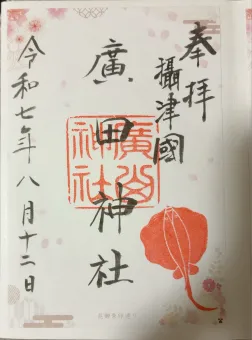 奉拝
攝津國
廣田神社
廣田
神社
令和七年八月十二日